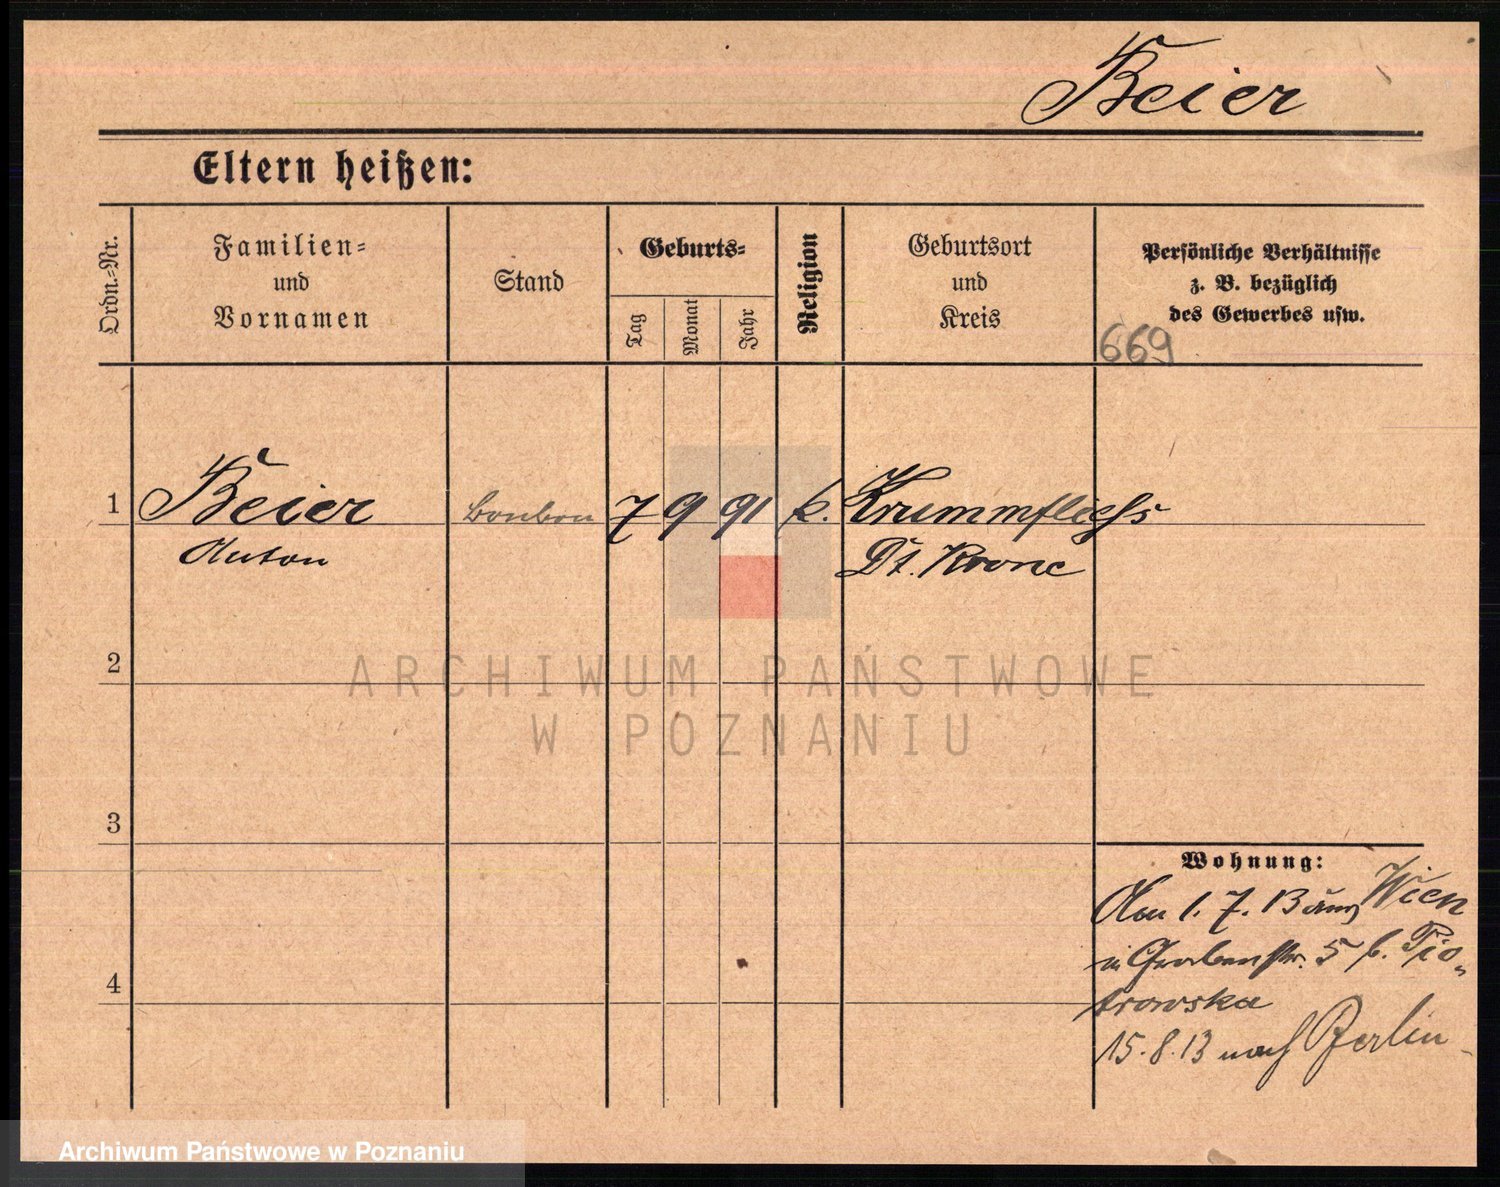 Beier
Eltern heißen:
Ordn.=Nr.
Familien=
und
Vornamen
Stand
Geburts=
Tag
Monat
Jahr
Religion
Geburtsort
und
Kreis
Persönliche Verhältnisse
z. B. bezüglich
des Gewerbes usw.
669
1 Beier 7 9 91 k. Krummfliess
Anton Dt. Krone
2
3
4
Wohnung:
Am 1. 7. 13 aus Wien
in Grabenstr. 5 b. Pio-
trowska
15.8.13 nach Berlin
ARCHIWUM PAŃSTWOWE
W POZNANIU
Archiwum Państwowe w Poznaniu